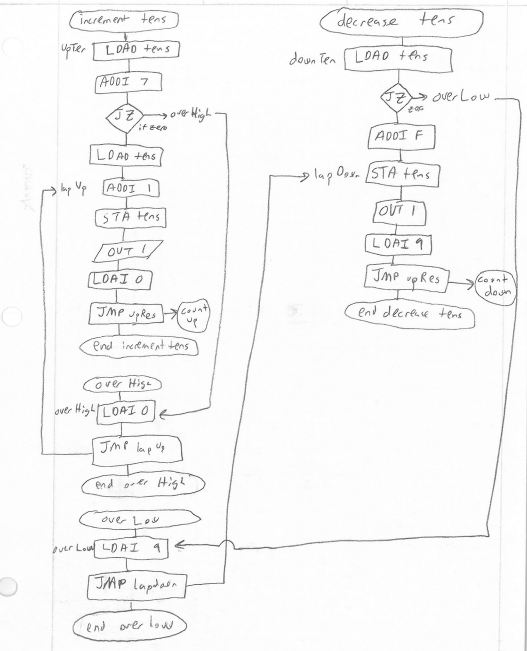 increment tens
upTen LDAD tens
ADDI 7
JZ → overHigh
if zero
LDAD tens
lap Up ADDI 1
STA tens
OUT 1
LDAI 0
JMP upRes → count up
end increment tens
over High
over High LDAI 0
JMP lap Up
end over High
over Low
over Low LDAI 9
JMP lapdown
end over low
decrease tens
down Ten LDAD tens
JZ → overLow
zero
ADDI F
lap Down STA tens
OUT 1
LDAI 9
JMP upRes → count down
end decrease tens